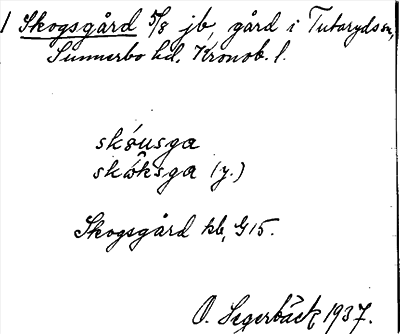 1 Skogsgård 5/8 jb, gård i Tutaryds sn,
Sunnerbo hd. Kronob. l.
skóusga
skóksga (y.)
Skogsgård kb, G15.
O. Segerbäck 1937.